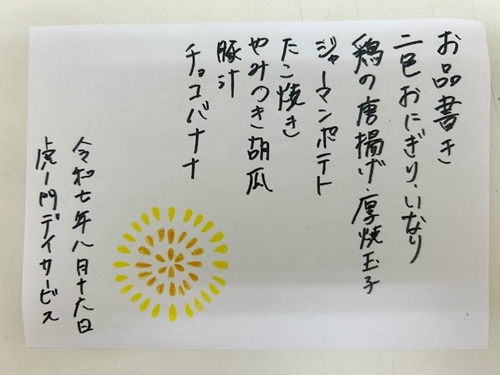 お品書き
二色おにぎり、いなり
鶏の唐揚げ・厚焼玉子
ジャーマンポテト
たこ焼き
やみつき胡瓜
豚汁
チョコバナナ
令和七年八月十六日
虎ノ門デイサービス